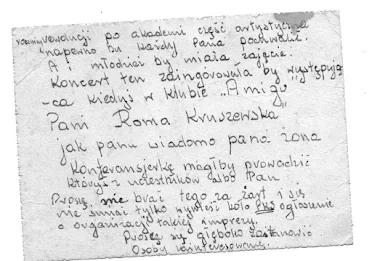 rocznicy rewolucji po akademii część artystyczna
napewno by każdy Pana pochwalił.
A i młodzież by miała zajęcie.
Koncert ten zainagurowała by występują-
-ca kiedyś w klubie "Amigo"
Pani Roma Kruszewska
jak panu wiadomo pana żona
Konferansjerkę mógłby prowadzić
któryś z uczestników albo Pan
Proszę nie brać tego za żart i się
nie śmiać tylko wywiesić koło ogłoszenie
o organizacji takiej imprezy.
Proszę się głęboko zastanowić
Osoby zainteresowane.